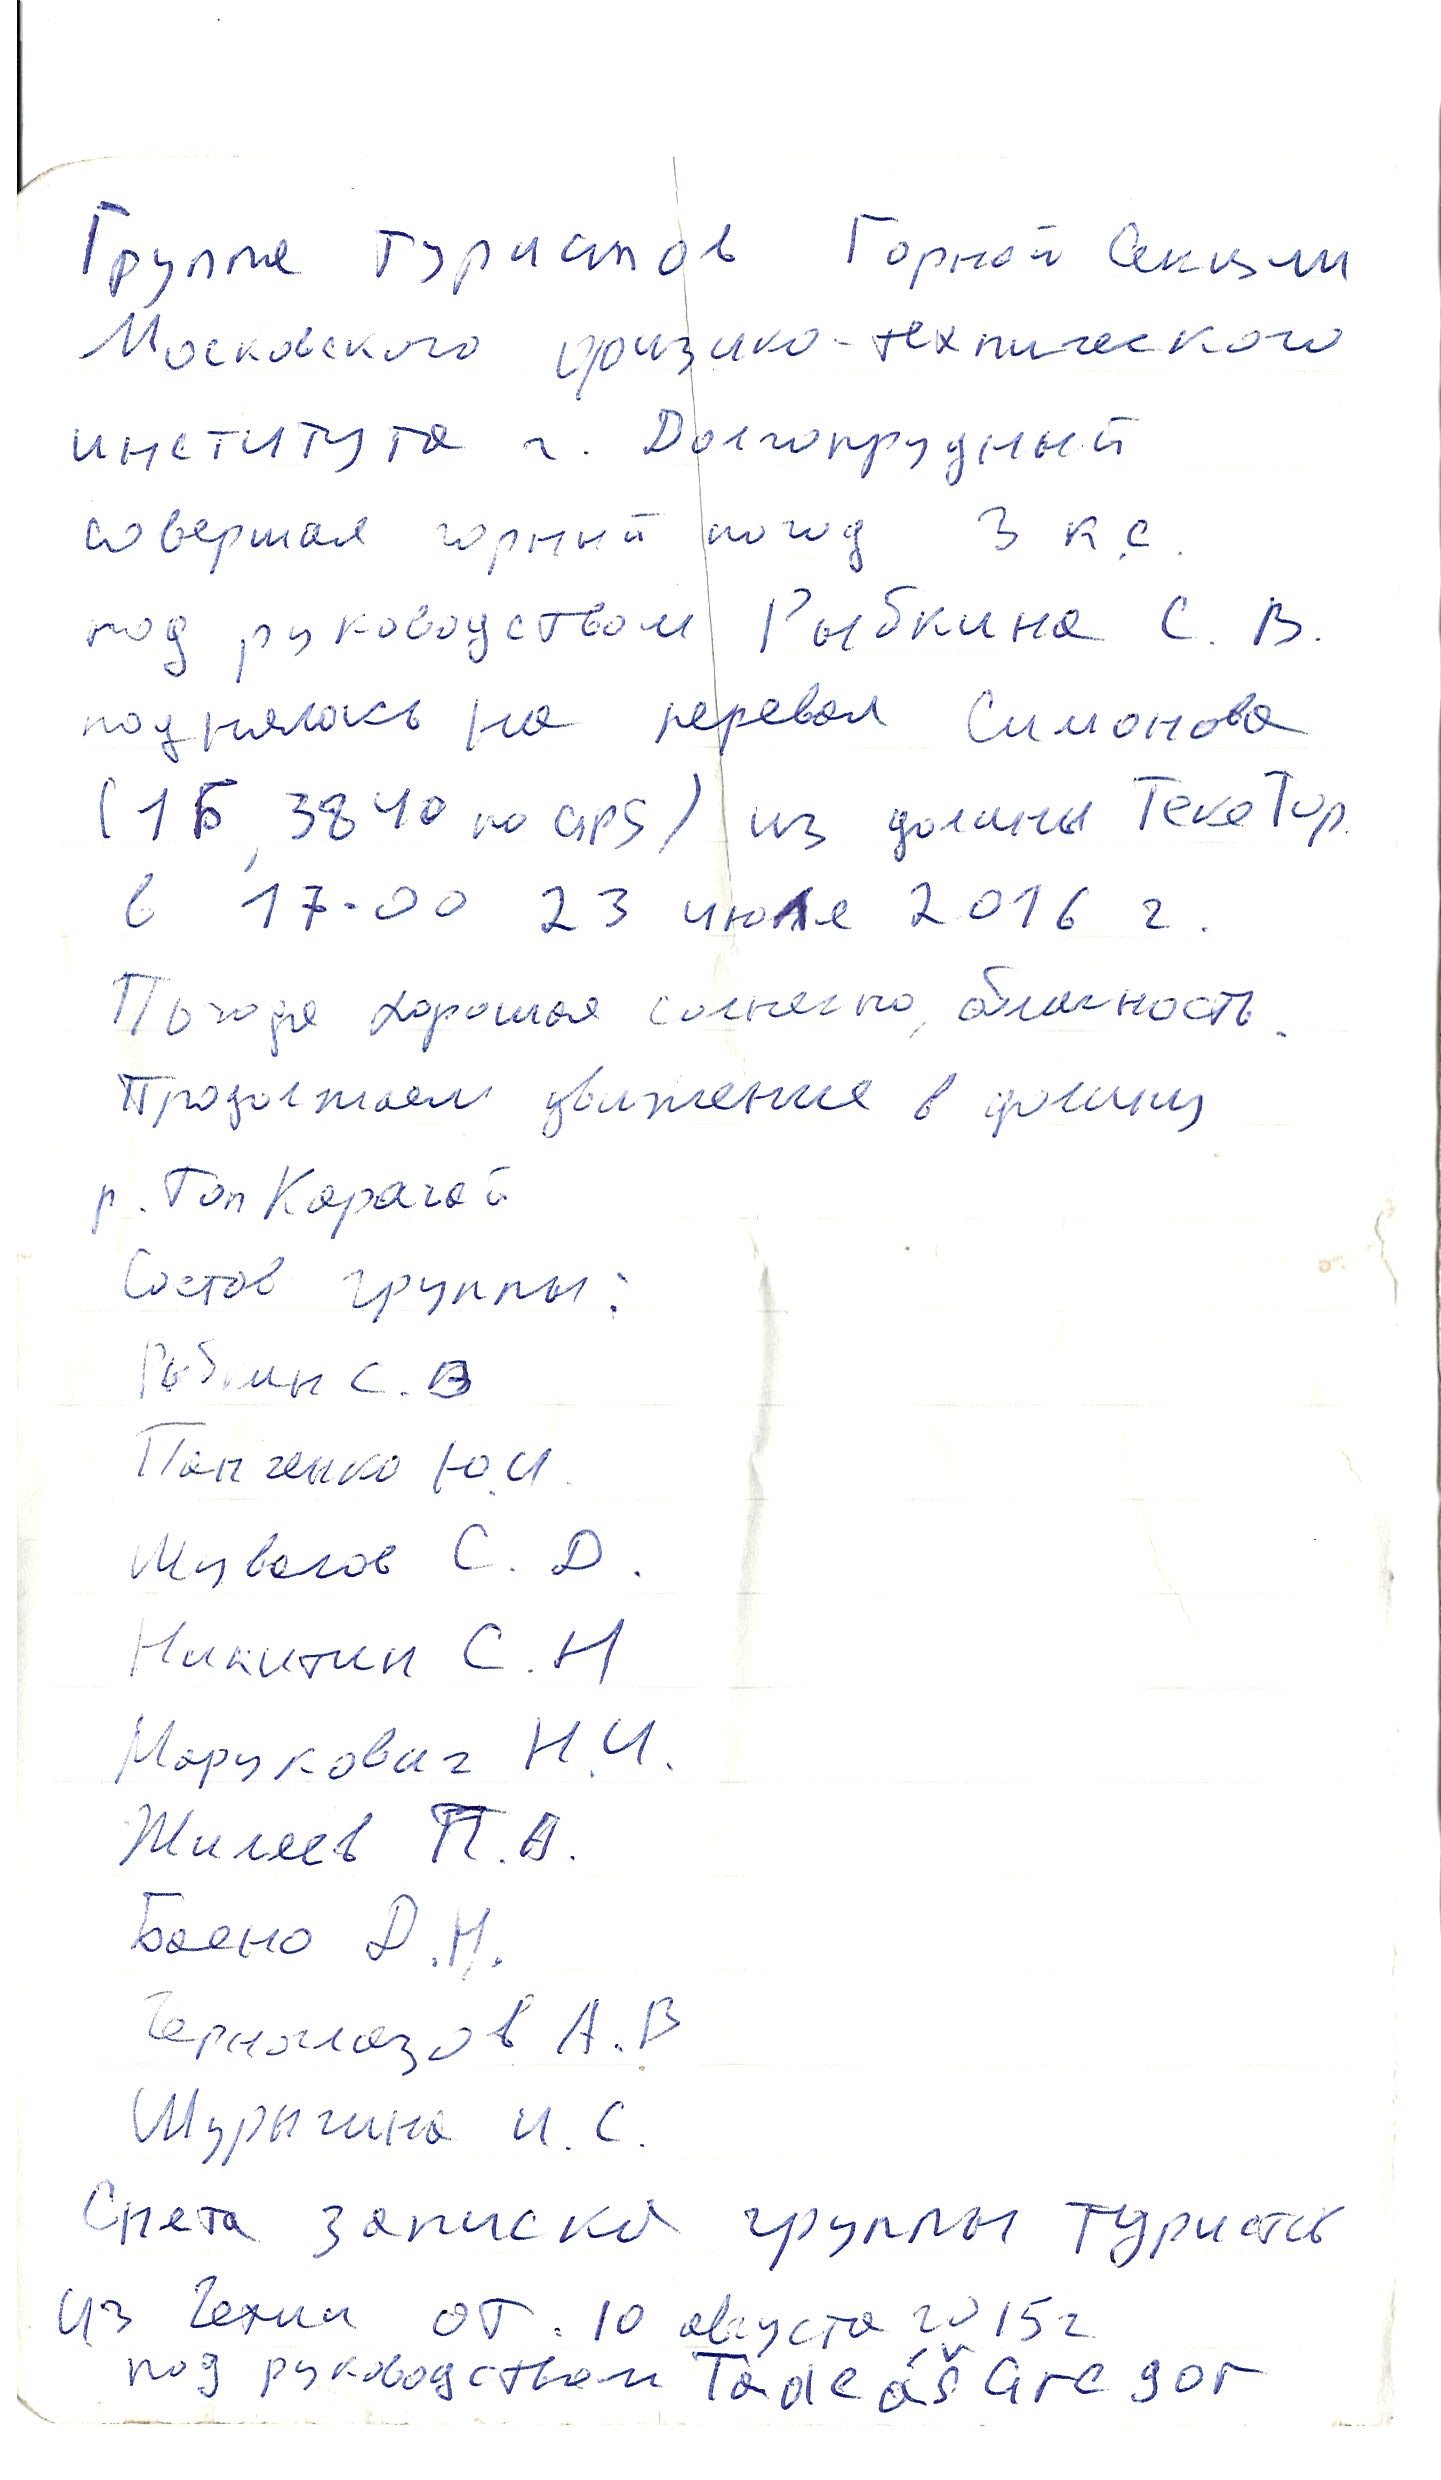 Группа туристов Горной Секции
Московского физико-технического
института г. Долгопрудный
совершая горный поход 3 к.с.
под руководством Рыбкина С. В.
поднялась на перевал Симонова
(1Б, 3840 по GPS) из долины ТекеТор.
в 17-00 23 июля 2016 г.
Погода хорошая солнечно, облачность.
Продолжаем движение в долину
р. Топ Карагай
Состав группы:
Рыбкин С. В
Панченко Ю.И.
Шувалов С. Д.
Никитин С. Н
Марукович Н.И.
Жилеев П.А.
Баено Д.Н.
Черноглазов А.В
Шурыгина И. С.
Снята записка группы туристов
из Чехии от. 10 августа 2015г
под руководством Tadeáš Gregor